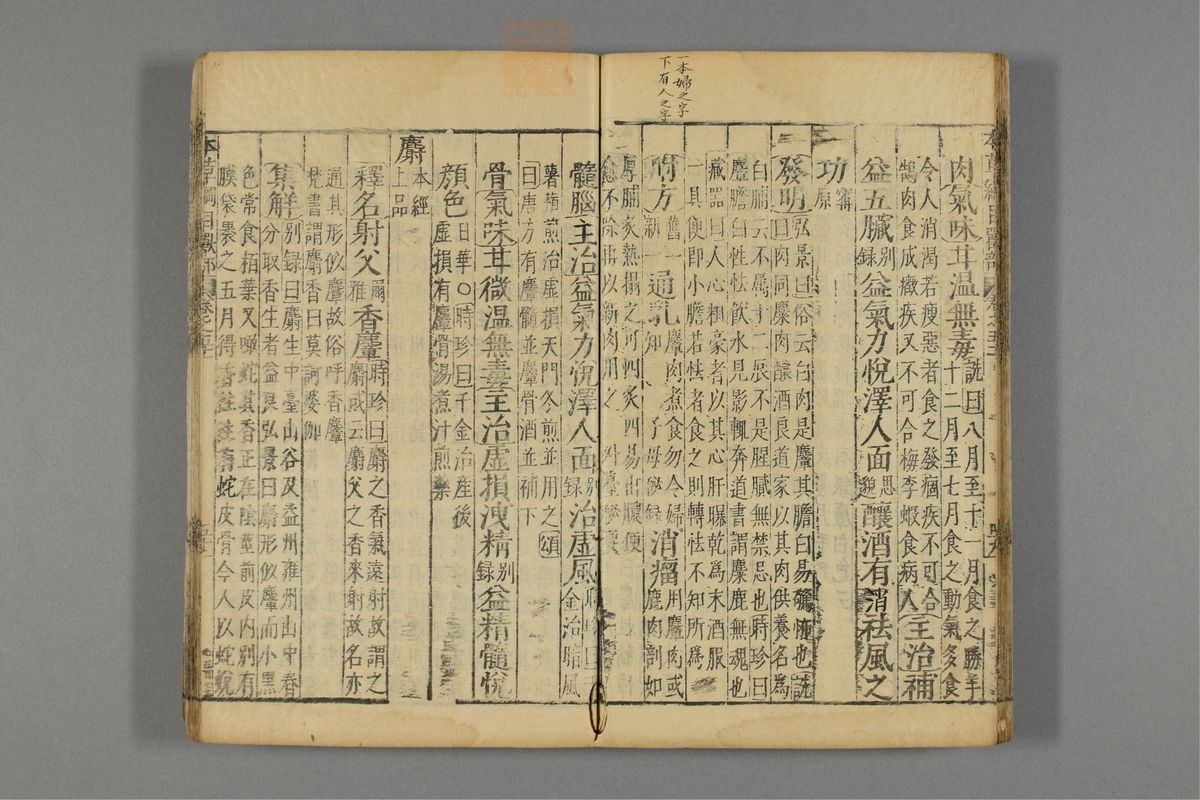 一本婦之字
下有人之字
本草綱目獸部
肉氣味甘溫無毒詵曰八月至十一月食之勝羊
十二月至七月食之動氣多食
令人消渴若瘦惡者食之發痼疾不可合
鵠肉食成癥疾又不可合梅李蝦食病人主治補
益五臟別錄益氣力悅澤人面思邈釀酒有消祛風之
功審原
發明弘景曰俗云白肉是麞其膽白易驚怖也詵
曰肉同麋肉釀酒良道家以其肉供養名爲
白脯云不屬十二辰不是腥膩無禁忌也時珍曰
麞膽白性怯飲水見影輒奔道書謂麋鹿無魂也
藏器曰人心粗豪者以其心肝曝乾爲末酒服
一具便即小膽若怯者食之則轉怯不知所爲
附方舊一新一通乳麞肉煮食勿令婦知子母秘錄消瘤用麞肉或鹿肉剖如
厚脯炙熱搨之可四炙四易出膿便
愈不除再以新肉用之
髓腦主治益氣力悅澤人面別錄治虛風時珍曰千金治暗風
薯蕷煎治虛損天門冬煎並用之頌
曰唐方有麞髓並麞骨酒並補下
骨氣味甘微溫無毒主治虛損洩精別錄益精髓悅
顏色日華○時珍曰千金治產後
虛損有麞骨湯煮汁煎藥
麝本經上品
釋名射父爾雅香麞時珍曰麝之香氣遠射故謂之
麝或云麝父之香來射故名亦
通其形似麞故俗呼香麞
梵書謂麝香曰莫訶婆伽
集解別錄曰麝生中臺山谷及益州雍州山中春
分取香生者益良弘景曰麝形似麞而小黑
色常食柏葉又噉蛇其香正在陰莖前皮內別有
膜袋裹之五月得香往往有蛇皮骨今人以蛇蛻
本草綱目獸部